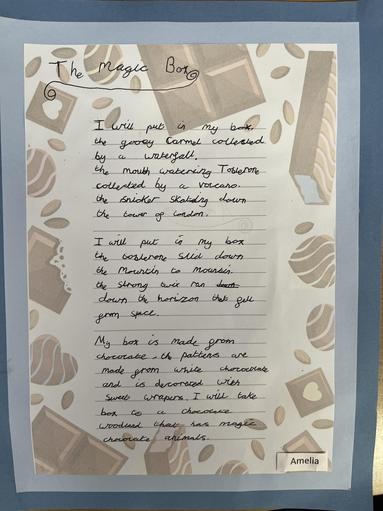 The Magic Box
I will put in my box.
the gooey Carmel collected
by a waterfall.
the mouth watering Toblerone
collected by a volcano.
the snicker skating down
the tower of London.
I will put in my box
the toblerone slid down
the Mountin to Mountin.
the strong twix ran down
down the horizon that fell
from space.
My box is made from
chocolate. the patterns are
made from white chocolate
and is decorated with
sweet wrapers. I will take
box to a chocolate
woodland that has magic
chocolate animals.
Amelia